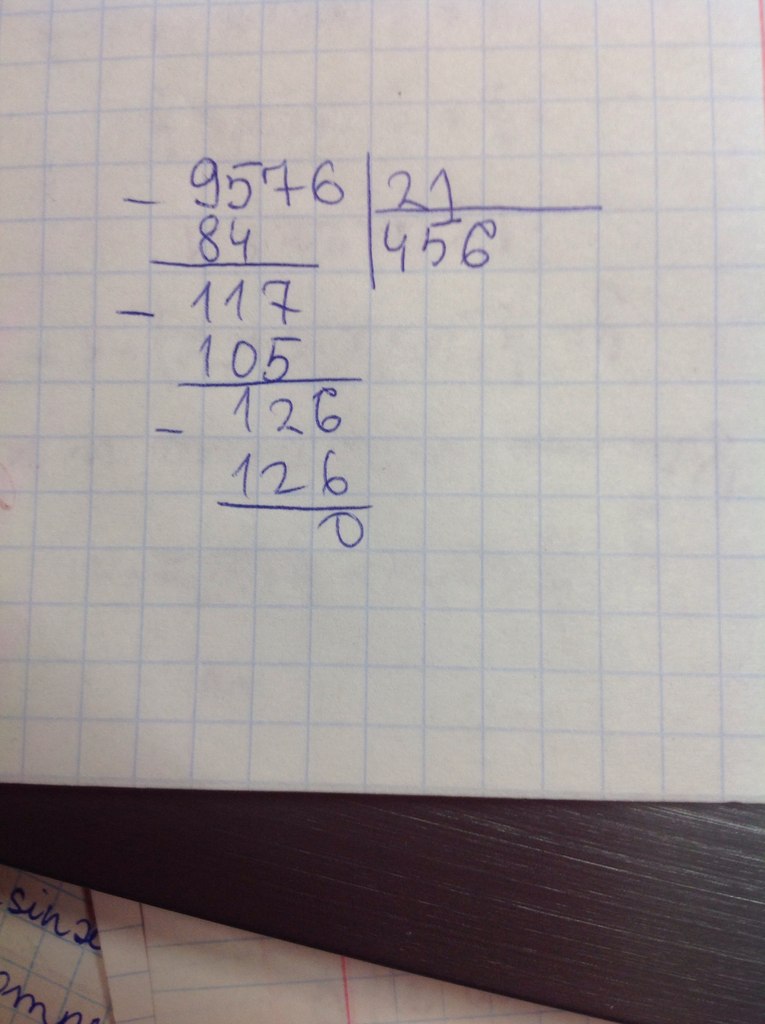 - 9576 | 21
84 456
- 117
105
- 126
126
0
sinx